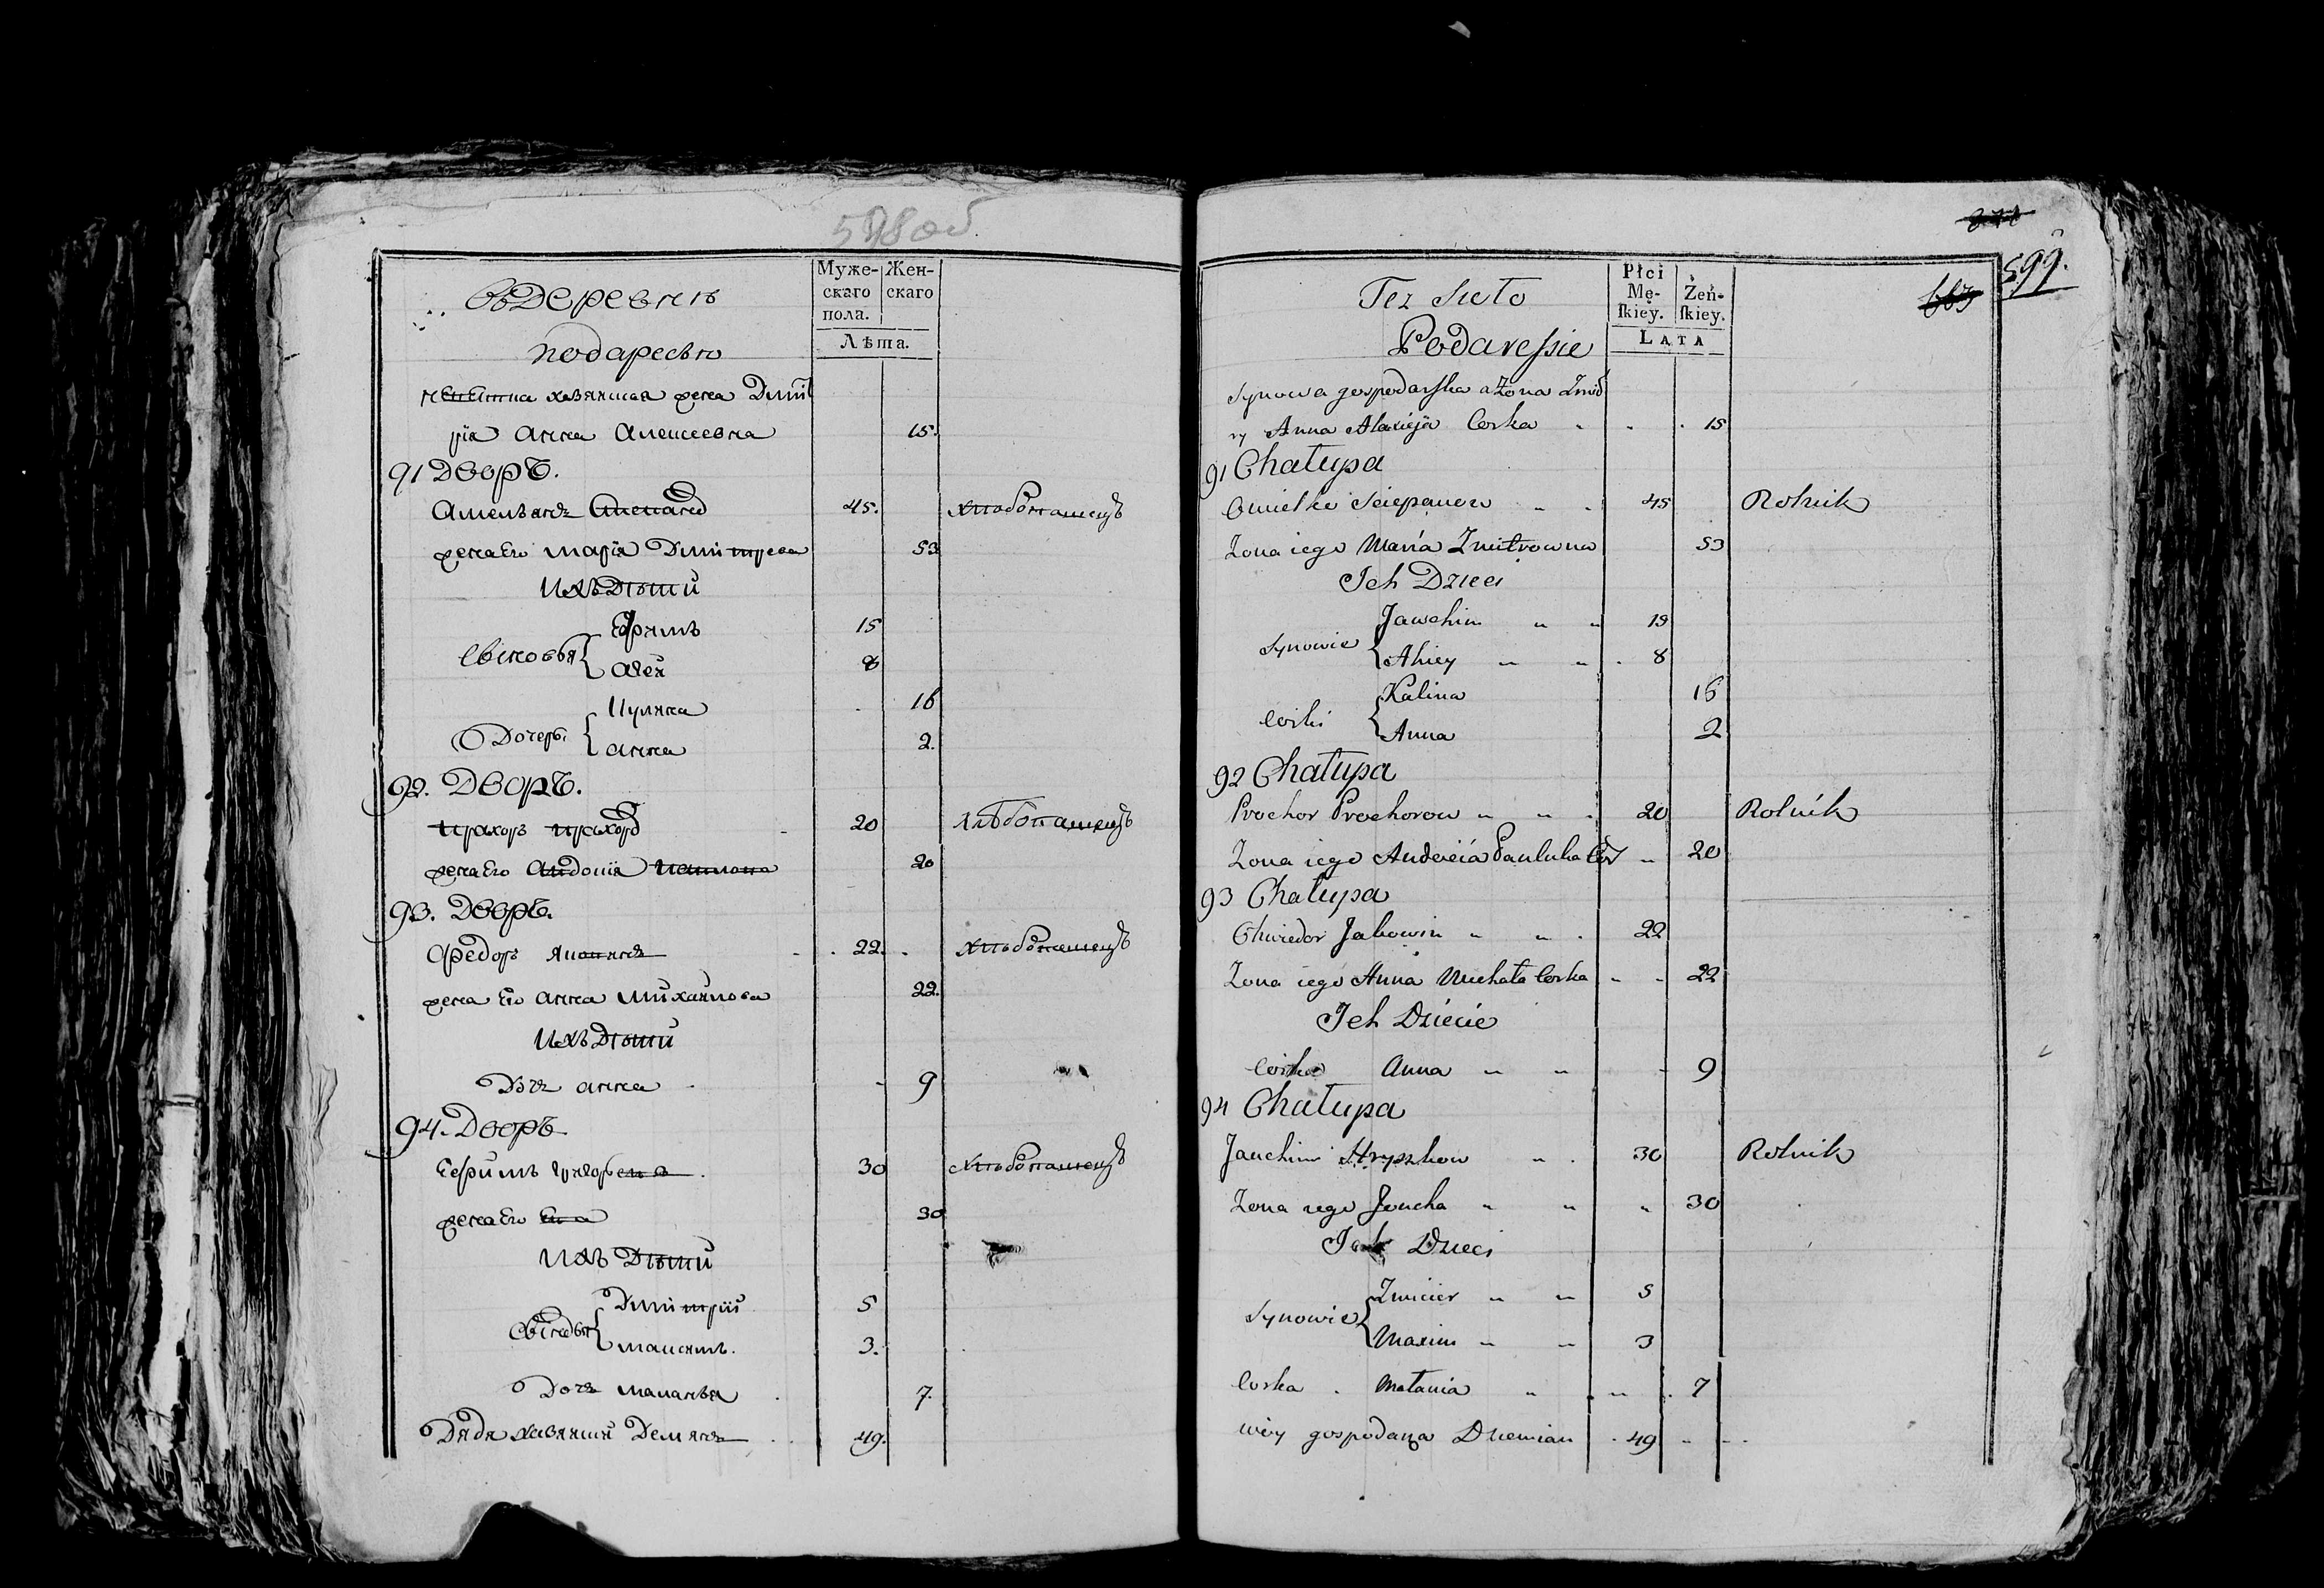 598 об
Муже- Жен-
скаго скаго
пола.
Лѣта.
въ Деревнѣ
подаресью
хазяиная жена Дмит
рія Анна Алексеевна 15.
91 Дворъ.
Амельянъ 45. хлѣбопашецъ
жена Его марія Дмитрева 53
Ихъ Дѣти
Сыновья Ефимъ 15
агей 8
Дочерь Иулина 16
анна 2.
92. Дворъ.
прахоръ прахоро 20 хлѣбопашецъ
жена Его 20
93. Дворъ.
Федоръ 22. хлѣбопашецъ
жена Его анна михайлова 22.
Ихъ Дѣти
Дочь анна 9
94. Дворъ
Ефимъ 30 хлѣбопашецъ
жена Его Ева 30
Ихъ Дѣти
Сыновья Дмитрій 5
максимъ. 3.
Дочь маланья 7.
Дядя хазяина Демянъ 49.
599.
Płci
Mę- Żeń-
ſkiey. ſkiey.
LATA
Tez Sieło
Podaressie
Synowa gospodarska a Zona Zmit
ry Anna Alaxieja Corka 15
91 Chałupa
Omielko Sciepanow 45 Rolnik
Zona iego Maria Zmitrowna 53
Ich Dzieci
Synowie Jawchim 15
Ahiey 8
Corki Kalina 16
Anna 2
92 Chałupa
Prochor Prochorow 20 Rolnik
Zona iego Pauluka Cor 20
93 Chałupa
Chwiedor Jakowin 22
Zona iego Anna Michała Corka 22
Ich Dziecie
Corka Anna 9
94 Chałupa
Jauchim Hryszkow 30 Rolnik
Zona iego Jeucha 30
Ich Dzieci
Synowie Zmicier 5
Maxim 3
Corka Małania 7
wuy gospodarza Dziemian 49